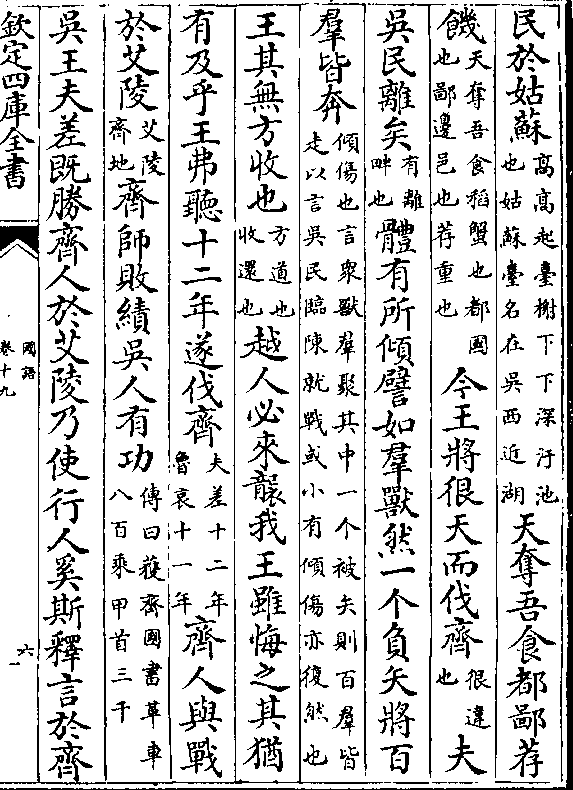 民於姑蘇高高起臺榭下下深汙池也姑蘇臺名在吳西近湖天奪吾食都鄙荐
饑天奪吾食稻蟹也都國也鄙邊邑也荐重也今王將很天而伐齊很違也夫
吳民離矣有離畔也體有所傾譬如羣獸然一个負矢將百
羣皆奔傾傷也言衆獸羣聚其中一个被矢則百羣皆走以言吳民臨陳就戰或小有傾傷亦復然也
王其無方收也方道也收還也越人必來襲我王雖悔之其猶
有及乎王弗聽十二年遂伐齊夫差十二年魯哀十一年齊人與戰
於艾陵艾陵齊地齊師敗績吳人有功傳曰獲齊國書革車八百乘甲首三千
吳王夫差既勝齊人於艾陵乃使行人奚斯釋言於齊
欽定四庫全書
國語
卷十九
六